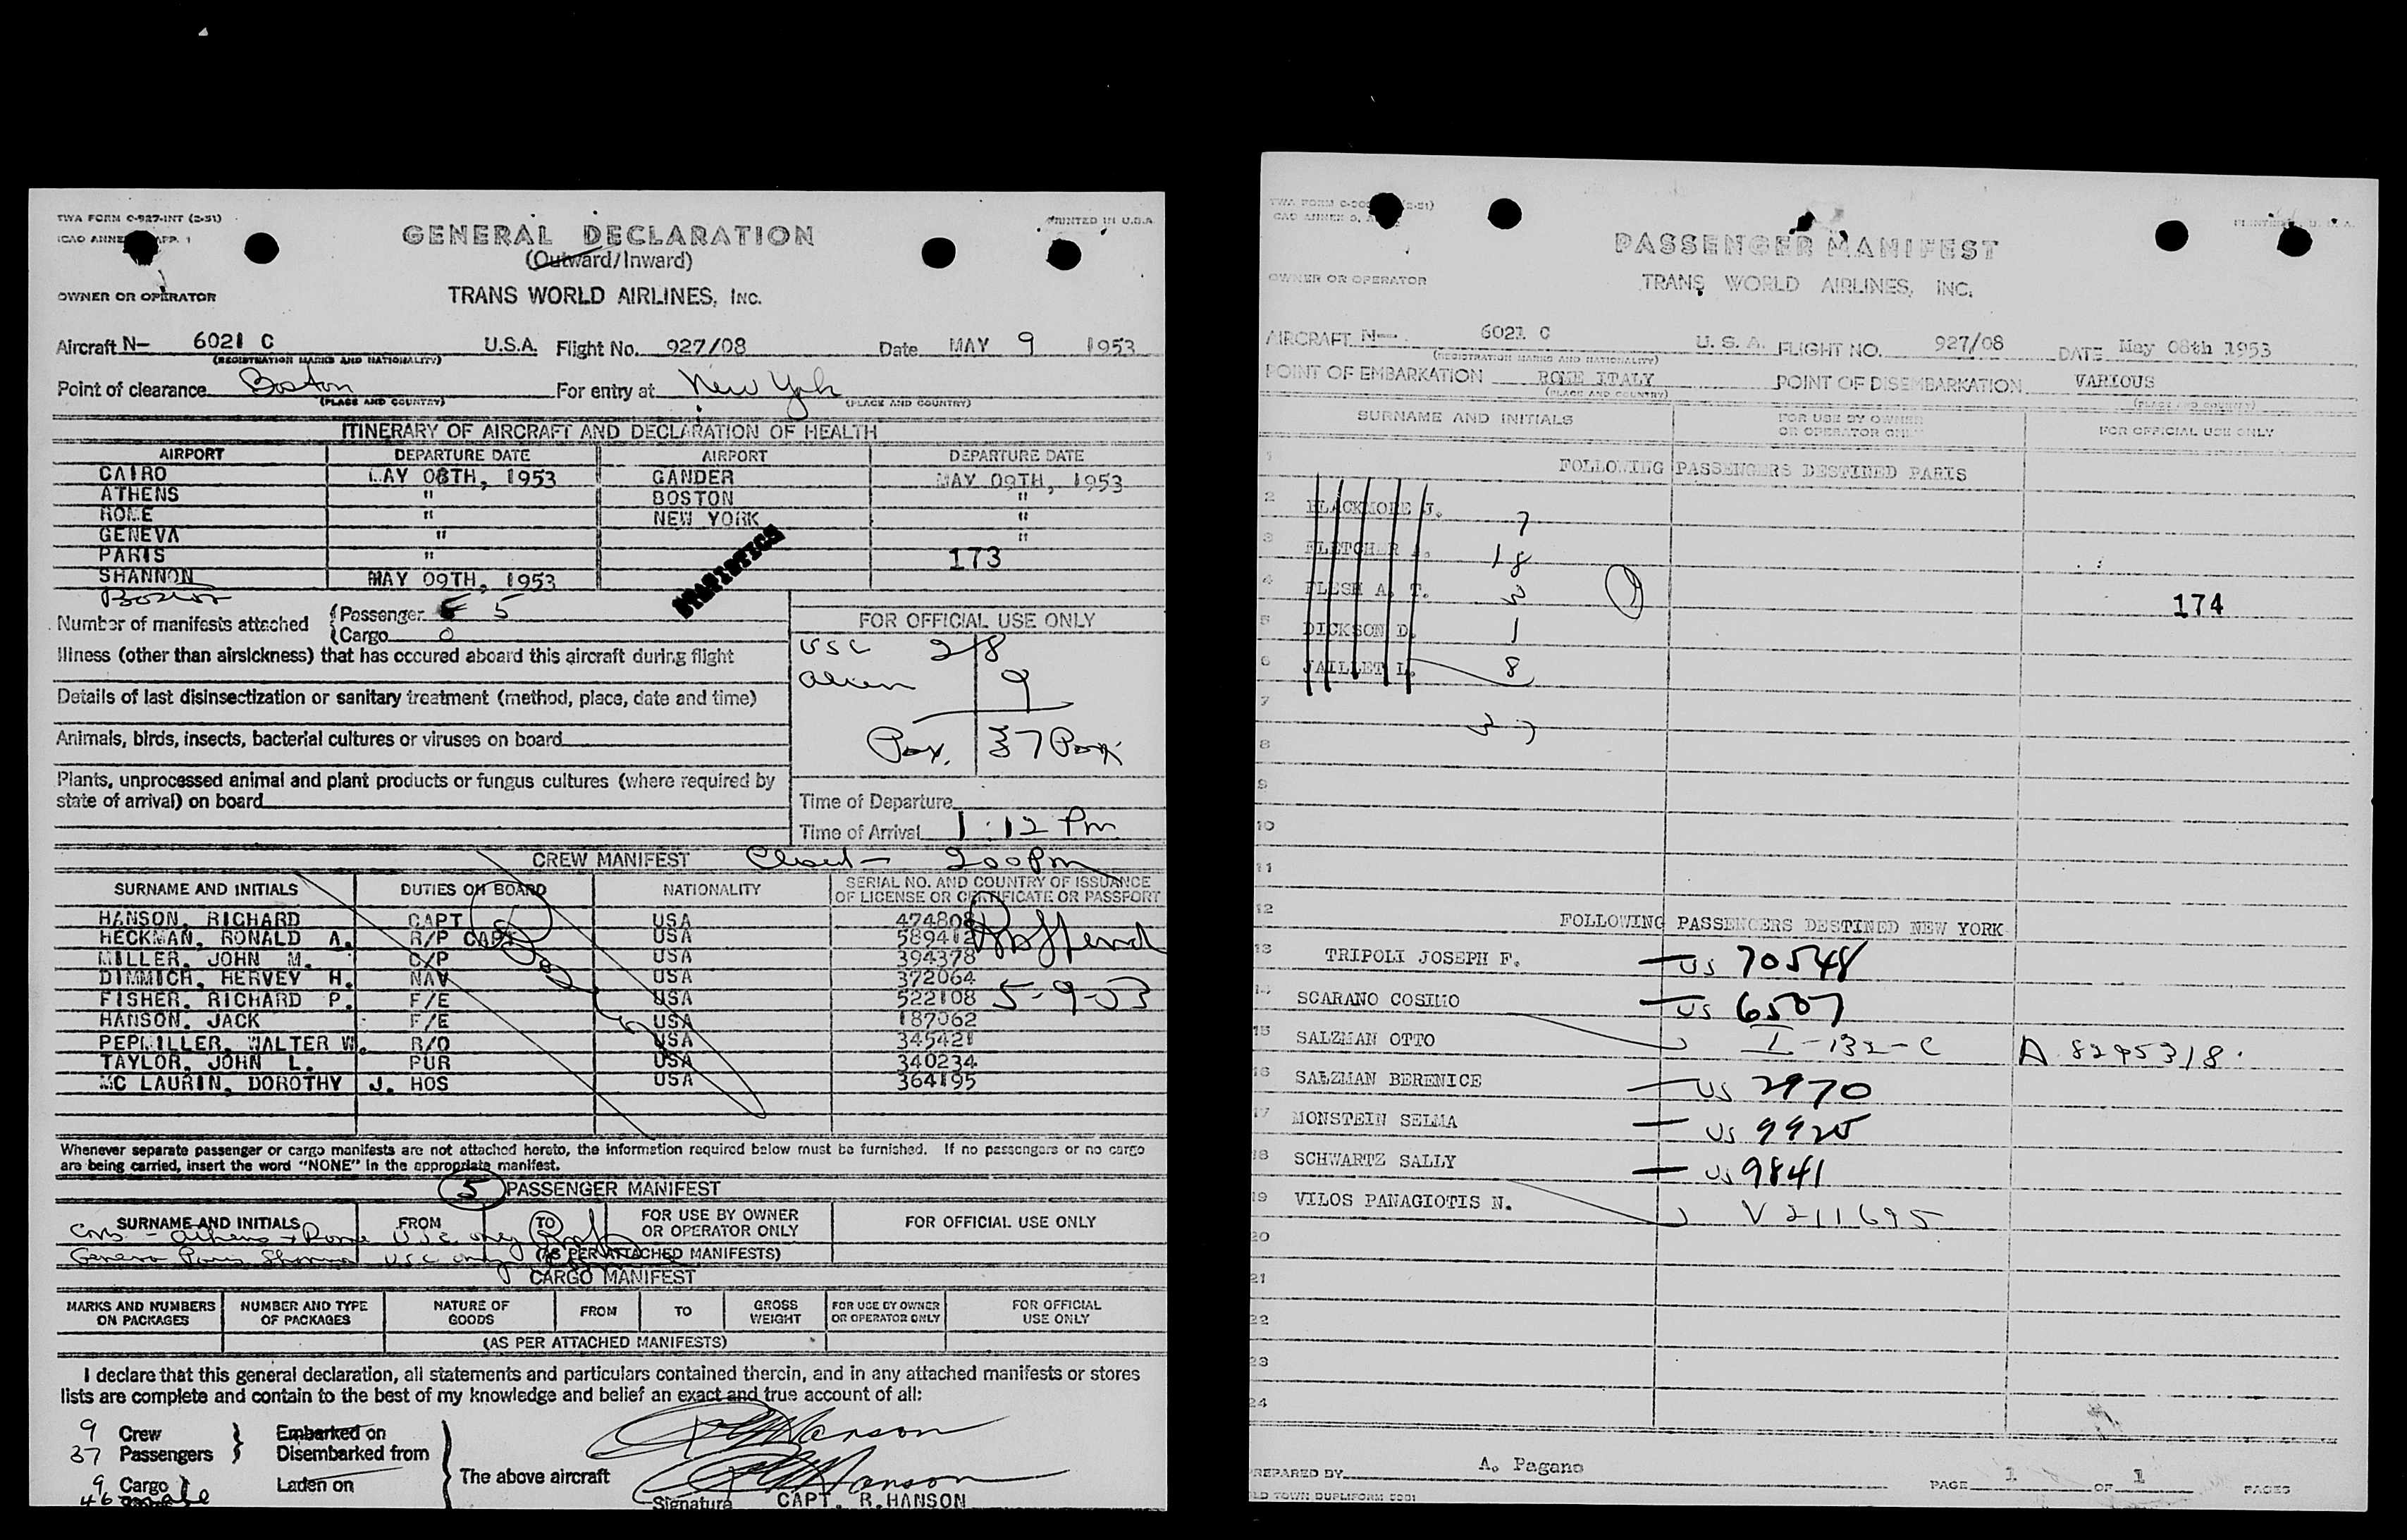 TWA FORM C-927-INT (2-51)
PRINTED IN U.S.A.
ICAO ANNEX APP. 1
GENERAL DECLARATION
(Outward/Inward)
OWNER OR OPERATOR
TRANS WORLD AIRLINES, INC.
Aircraft N- 6021 C U.S.A. Flight No. 927/08 Date MAY 9 1953
(REGISTRATION MARKS AND NATIONALITY)
Point of clearance Boston For entry at New York
(PLACE AND COUNTRY) (PLACE AND COUNTRY)
ITINERARY OF AIRCRAFT AND DECLARATION OF HEALTH
AIRPORT DEPARTURE DATE AIRPORT DEPARTURE DATE
CAIRO MAY 08TH, 1953 GANDER MAY 09TH, 1953
ATHENS " BOSTON "
ROME " NEW YORK "
GENEVA " "
PARIS " 173
SHANNON MAY 09TH, 1953
Boston
Number of manifests attached
(Passenger 5
(Cargo 0
FOR OFFICIAL USE ONLY
USC 28
Alien 9
Pax. 37 Pax
Illness (other than airsickness) that has occured aboard this aircraft during flight
Details of last disinsectization or sanitary treatment (method, place, date and time)
Animals, birds, insects, bacterial cultures or viruses on board
Plants, unprocessed animal and plant products or fungus cultures (where required by
state of arrival) on board
Time of Departure
Time of Arrival 1:12 Pm
CREW MANIFEST Closed - 200 Pm
SURNAME AND INITIALS DUTIES ON BOARD NATIONALITY SERIAL NO. AND COUNTRY OF ISSUANCE
OF LICENSE OR CERTIFICATE OR PASSPORT
HANSON, RICHARD CAPT USA 474808
HECKMAN, RONALD A. R/P CAPT USA 589412
MILLER, JOHN M. C/P USA 394378
DIMMICH, HERVEY H. NAV USA 372064
FISHER, RICHARD P. F/E USA 522108 5-9-53
HANSON, JACK F/E USA 187062
PEPMILLER, WALTER W. R/O USA 345421
TAYLOR, JOHN L. PUR USA 340234
MC LAURIN, DOROTHY J. HOS USA 364195
Whenever separate passenger or cargo manifests are not attached hereto, the information required below must be furnished. If no passengers or no cargo
are being carried, insert the word "NONE" in the appropriate manifest.
5 PASSENGER MANIFEST
SURNAME AND INITIALS FROM TO FOR USE BY OWNER
OR OPERATOR ONLY FOR OFFICIAL USE ONLY
Athens Rome USC only
Geneva Paris Shannon USC only (AS PER ATTACHED MANIFESTS)
CARGO MANIFEST
MARKS AND NUMBERS
ON PACKAGES NUMBER AND TYPE
OF PACKAGES NATURE OF
GOODS FROM TO GROSS
WEIGHT FOR USE BY OWNER
OR OPERATOR ONLY FOR OFFICIAL
USE ONLY
(AS PER ATTACHED MANIFESTS)
I declare that this general declaration, all statements and particulars contained therein, and in any attached manifests or stores
lists are complete and contain to the best of my knowledge and belief an exact and true account of all:
9 Crew Embarked on
37 Passengers Disembarked from
9 Cargo Laden on The above aircraft
46
Signature CAPT. R. HANSON
PRINTED IN U.S.A.
PASSENGER MANIFEST
OWNER OR OPERATOR
TRANS WORLD AIRLINES, INC.
AIRCRAFT N- 6021 C U.S.A. FLIGHT NO. 927/08 DATE May 08th 1953
(REGISTRATION MARKS AND NATIONALITY)
POINT OF EMBARKATION ROME ITALY POINT OF DISEMBARKATION VARIOUS
(PLACE AND COUNTRY) (PLACE AND COUNTRY)
SURNAME AND INITIALS FOR USE BY OWNER
OR OPERATOR ONLY FOR OFFICIAL USE ONLY
1 FOLLOWING PASSENGERS DESTINED PARIS
2 BLACKMORE J. 7
3 FLETCHER 18
4 FLESH A. T. 3 174
5 DICKSON D. 1
6 JAILLET L. 8
7 37
8
9
10
11
12 FOLLOWING PASSENGERS DESTINED NEW YORK
13 TRIPOLI JOSEPH F. US 70548
14 SCARANO COSIMO US 6507
15 SALZMAN OTTO I-132-C A 8295318
16 SALZMAN BERENICE US 2970
17 MONSTEIN SELMA US 9925
18 SCHWARTZ SALLY US 9841
19 VILOS PANAGIOTIS N. V 211695
20
21
22
23
24
PREPARED BY A. Pagano PAGE 1 OF 1 PAGES
OLD TOWN DUPLIFORM 5001